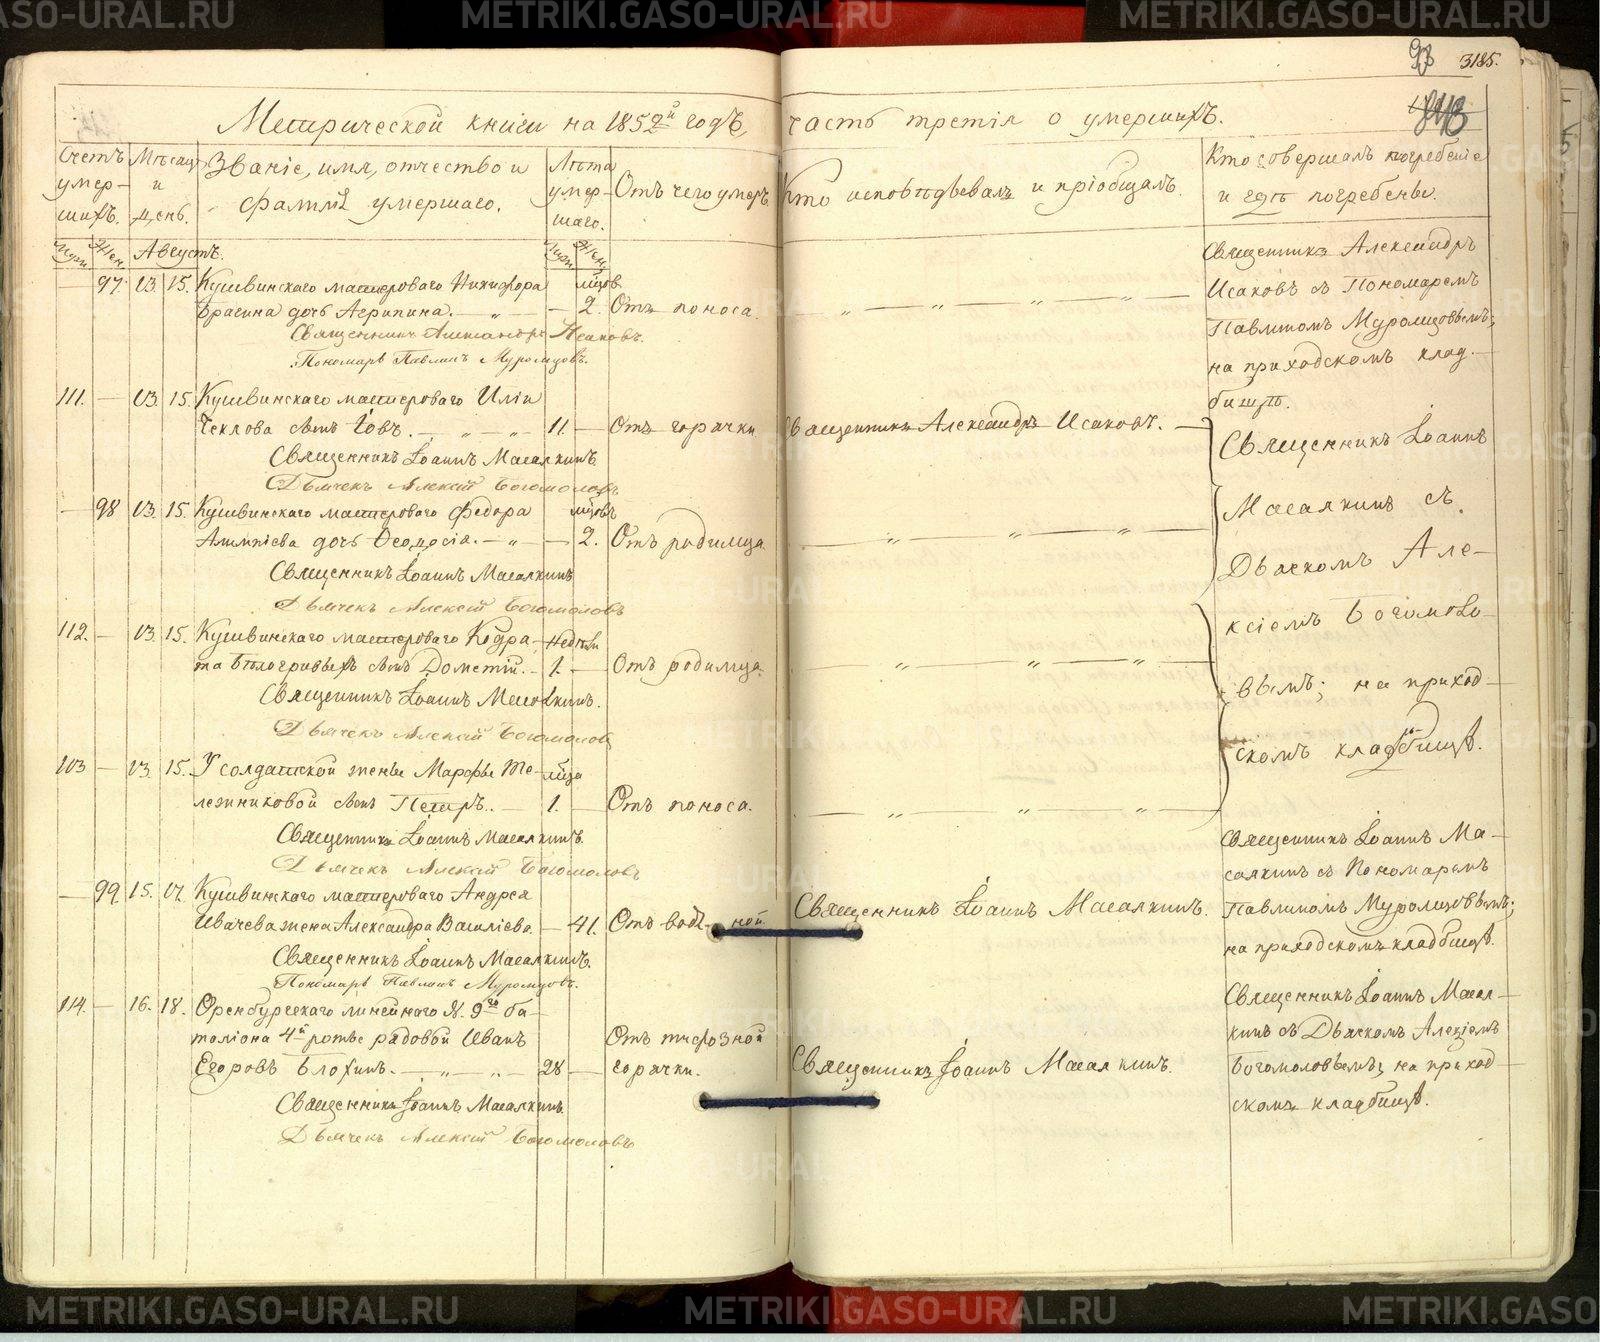 3185.
Метрической книги на 1852й годъ, часть третія о умершихъ.
Счетъ умер-шихъ.
Мѣсяцъ и день.
Званіе, имя, отчество и фамилія умершаго.
Лѣта умер-шаго.
Отъ чего умеръ.
Кто исповѣдывалъ и пріобщалъ.
Кто совершалъ погребеніе и гдѣ погребены.
Муж. Жен. Августъ. Муж. Жен.
— 97 13. 15. Кушвинскаго мастероваго Никифора мѣсяцовъ
дочь Агрипина. — „ — — 2. Отъ поноса. — „ — „ — „ —
Священникъ Александръ Исаковъ.
Пономарь Павлинъ Муромцовъ.
Священникъ Александръ
Исаковъ съ Пономаремъ
Павлиномъ Муромцовымъ;
на приходскомъ клад-
бищѣ.
111. — 13. 15. Кушвинскаго мастероваго Иліи
Чеклова сынъ Іовъ. — „ — „ — 11. — Отъ горячки Священникъ Александръ Исаковъ. —
Священникъ Іоаннъ Масалкинъ
Дьячекъ Алексій Богомоловъ
— 98 13. 15. Кушвинскаго мастероваго Федора
дочь Ѳеодосія. — „ — — 2. Отъ родимца — „ — „ — „ —
Священникъ Іоаннъ Масалкинъ
Дьячекъ Алексій Богомоловъ
112. — 13. 15. Кушвинскаго мастероваго Кодра- недѣли
та Бѣлогривыхъ сынъ Дометій. — 1. — Отъ родимца. — „ — „ — „ —
Священникъ Іоаннъ Масалкинъ.
Дьячекъ Алексій Богомоловъ
103 — 13. 15. У солдатской жены Марфы Же-
лезниковой сынъ Петръ. — 1. — Отъ поноса. — „ — „ — „ —
Священникъ Іоаннъ Масалкинъ.
Дьячекъ Алексій Богомоловъ
Священникъ Іоаннъ
Масалкинъ съ
Дьячкомъ Але-
ксіемъ Богомоло-
вымъ; на приход-
скомъ кладбищѣ.
— 99. 15. 17. Кушвинскаго мастероваго Андрея
Ивачева жена Александра Василіева. — 41. Отъ водя-ной Священникъ Іоаннъ Масалкинъ.
Священникъ Іоаннъ Масалкинъ.
Пономарь Павлинъ Муромцовъ.
Священникъ Іоаннъ Ма-
салкинъ съ Пономаремъ
Павлиномъ Муромцовымъ;
на приходскомъ кладбищѣ.
114. — 16. 18. Оренбургскаго линейнаго N. 9го ба-
таліона 4й роты рядовой Иванъ Отъ тифозной
Егоровъ Блохинъ. — „ — „ — 28 — горячки. Священникъ Іоаннъ Масалкинъ.
Священникъ Іоаннъ Масалкинъ
Дьячекъ Алексій Богомоловъ
Священникъ Іоаннъ Масал-
кинъ съ Дьячкомъ Алексіемъ
Богомоловымъ; на приход-
скомъ кладбищѣ.
METRIKI.GASO-URAL.RU